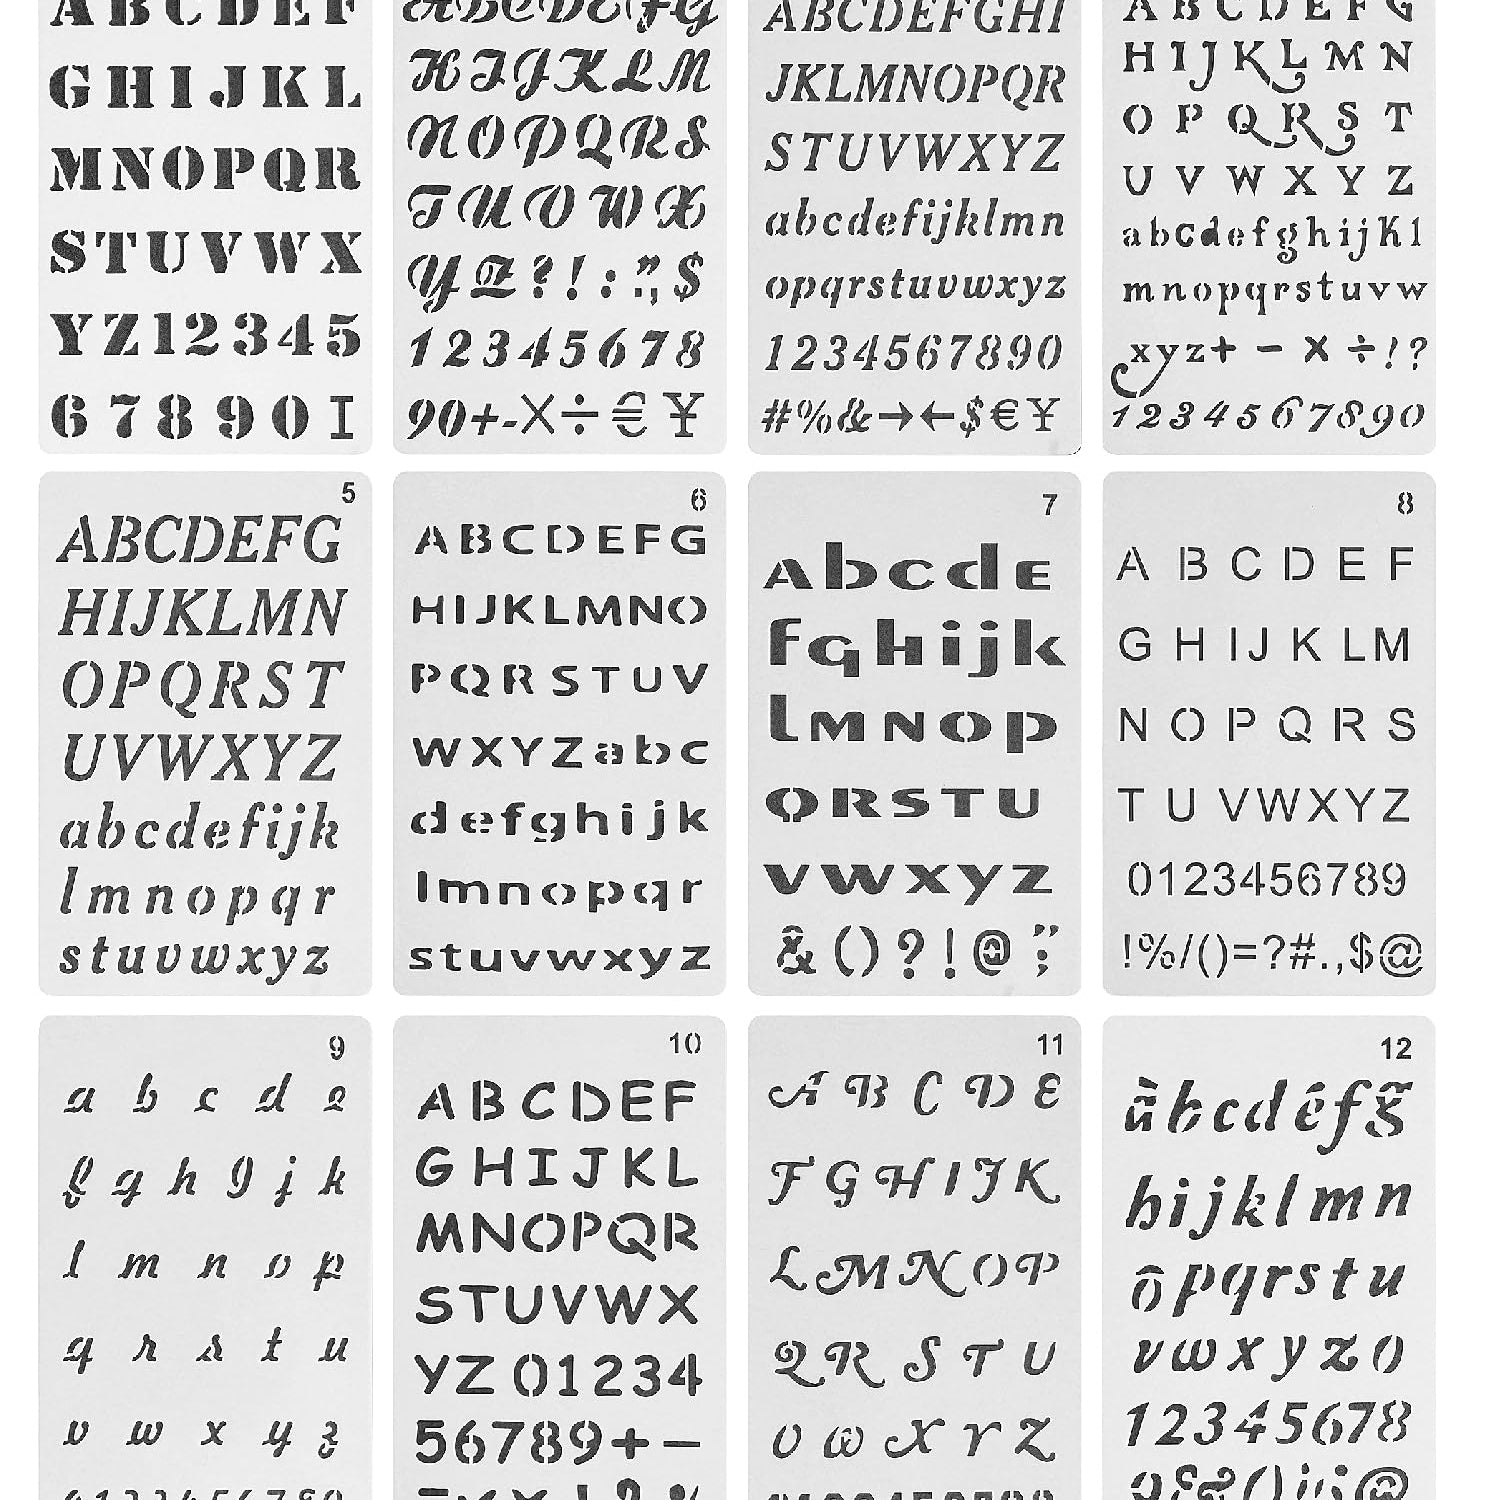 ABCDEF
GHIJKL
MNOPQR
STUVWX
YZ12345
67890I
ABCDEFG
HIJKLM
NOPQRS
TUVWX
YZ?!:";$
12345678
90+-×÷€¥
ABCDEFGHI
JKLMNOPQR
STUVWXYZ
abcdefijklmn
opqrstuvwxyz
1234567890
#%&→←$€¥
ABCDEFG
HIJKLMN
OPQRST
UVWXYZ
abcdefghijkl
mnopqrstuvw
xyz+-×÷!?
1234567890
5
ABCDEFG
HIJKLMN
OPQRST
UVWXYZ
abcdefijk
lmnopqr
stuvwxyz
6
ABCDEFG
HIJKLMNO
PQRSTUV
WXYZabc
defghijk
lmnopqr
stuvwxyz
7
Abcde
fghijk
lMNop
QRSTU
vwxyz
&()?!@";
8
ABCDEF
GHIJKLM
NOPQRS
TUVWXYZ
0123456789
!%/()=?#.,$@
9
a b c d e
f g h i j k
l m n o p
q r s t u
v w x y z
10
ABCDEF
GHIJKL
MNOPQR
STUVWX
YZ01234
56789+-
11
A B C D E
F G H I J K
L M N O P
Q R S T U
V W X Y Z
12
àbcdéfg̃
hijklmn
ôpqrstu
vwxyz0
12345678